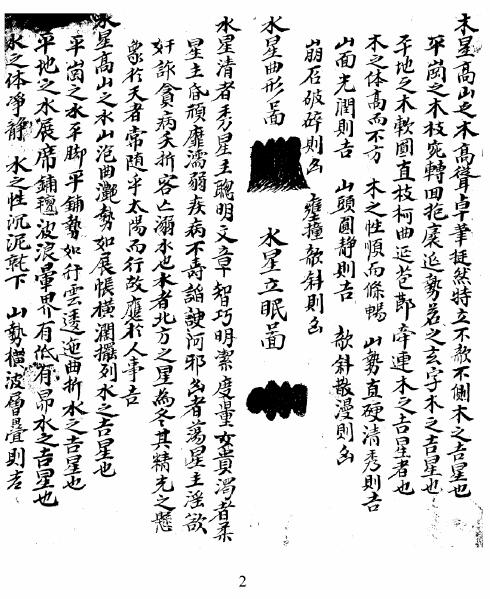 木星高山之木高聳卓筆挺然特立不欹不側木之吉星也
平崗之木枝宛轉回抱裹迤勢若之玄字木之吉星也
平地之木軟圓直枝柯曲延苞節牽連木之吉星者也
木之体高而不方 木之性順而條暢 山勢直硬清秀則吉
山面光潤則吉 山頭圓静則吉 欹斜散漫則凶
崩石破碎則凶 欹斜則凶
水星曲形啚 水星立眠啚
水星清者秀星主聰明文章智巧明潔度量女貴濁者柔
星主昏頑靡濡弱疾病不壽謟諛河邪凶者蕩星主淫欲
奸詐貪病夭折客亡溺水也水者北方之星為冬其精光之懸
象於天者常随乎太陽而行故應於人事吉
水星高山之水山泡曲灔勢如展帳橫瀾擺列水之吉星也
平崗之水平脚平鋪勢如行雲逶迤曲折水之吉星也
平地之水展席鋪氊波浪暈界有低有昂水之吉星也
水之体凈静 水之性沉泥就下 山勢橫波層疊則吉
2